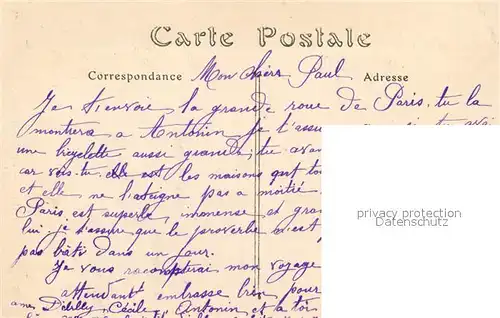 Carte Postale
Correspondance Mon chère Paul Adresse
Je t'envoie la grande roue de Paris. tu la
montrera a Antonin je l'assu
une bicyclette aussi grande, tu
car vois-tu elle est les maisons qui to
et elle ne l'atteigne pas a moitié
Paris est superbe, immense et gran
lui. je t'assure que le proverbe n'est
pas bâti dans un jour.
Je vous raconterai mon voyage
attendant embrasse bien pour
Cécile, Antonin et a toi
privacy protection
www.ansichtskartenversand.com